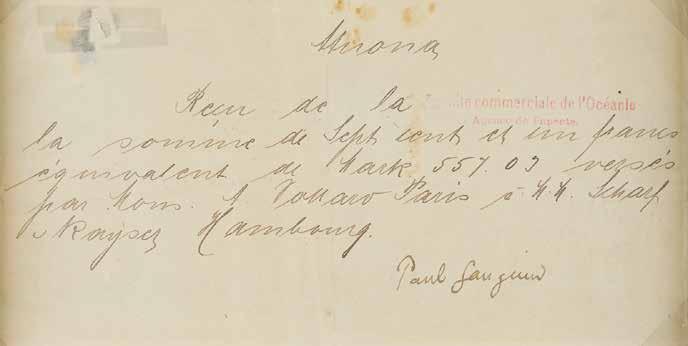 Atuona
Recu de la Société commerciale de l'Océanie
Agence de Papeete.
la somme de Sept cent et un francs
équivalent de Mark 557.03 versés
par Mons. A Vollard Paris à M.M. Scharf
& Kayser Hambourg.
Paul Gauguin